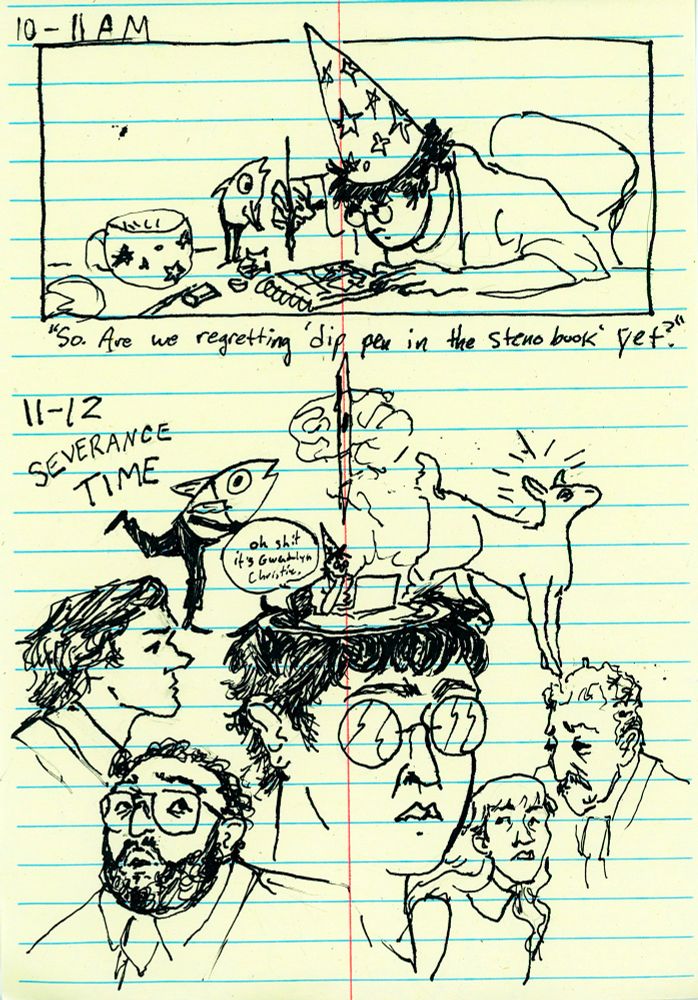 10-11 AM
"So. Are we regretting 'dip pen in the steno book' yet?"
11-12
SEVERANCE
TIME
oh shit
it's Gwendolyn
Christie.